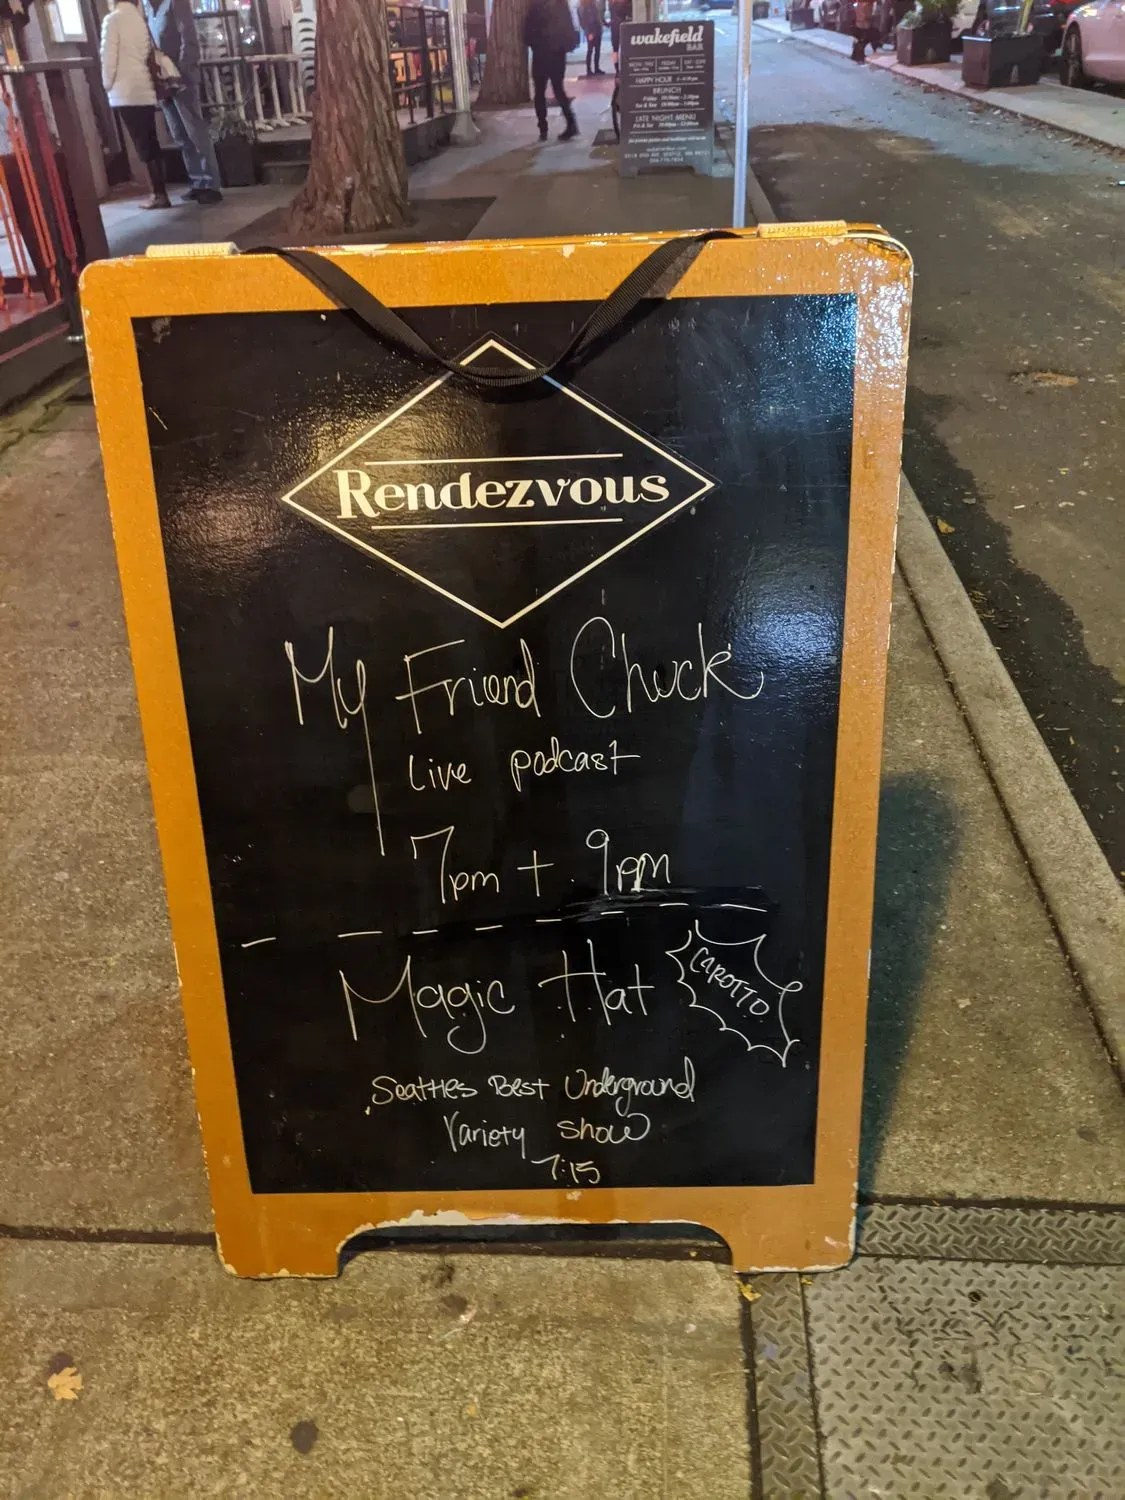 wakefield
BAR
HAPPY HOUR
BRUNCH
LATE NIGHT MENU
Rendezvous
My Friend Chuck
Live podcast
7pm + 9pm
Magic Hat
CAROTTO
Seattles Best Underground
Variety Show
7:15